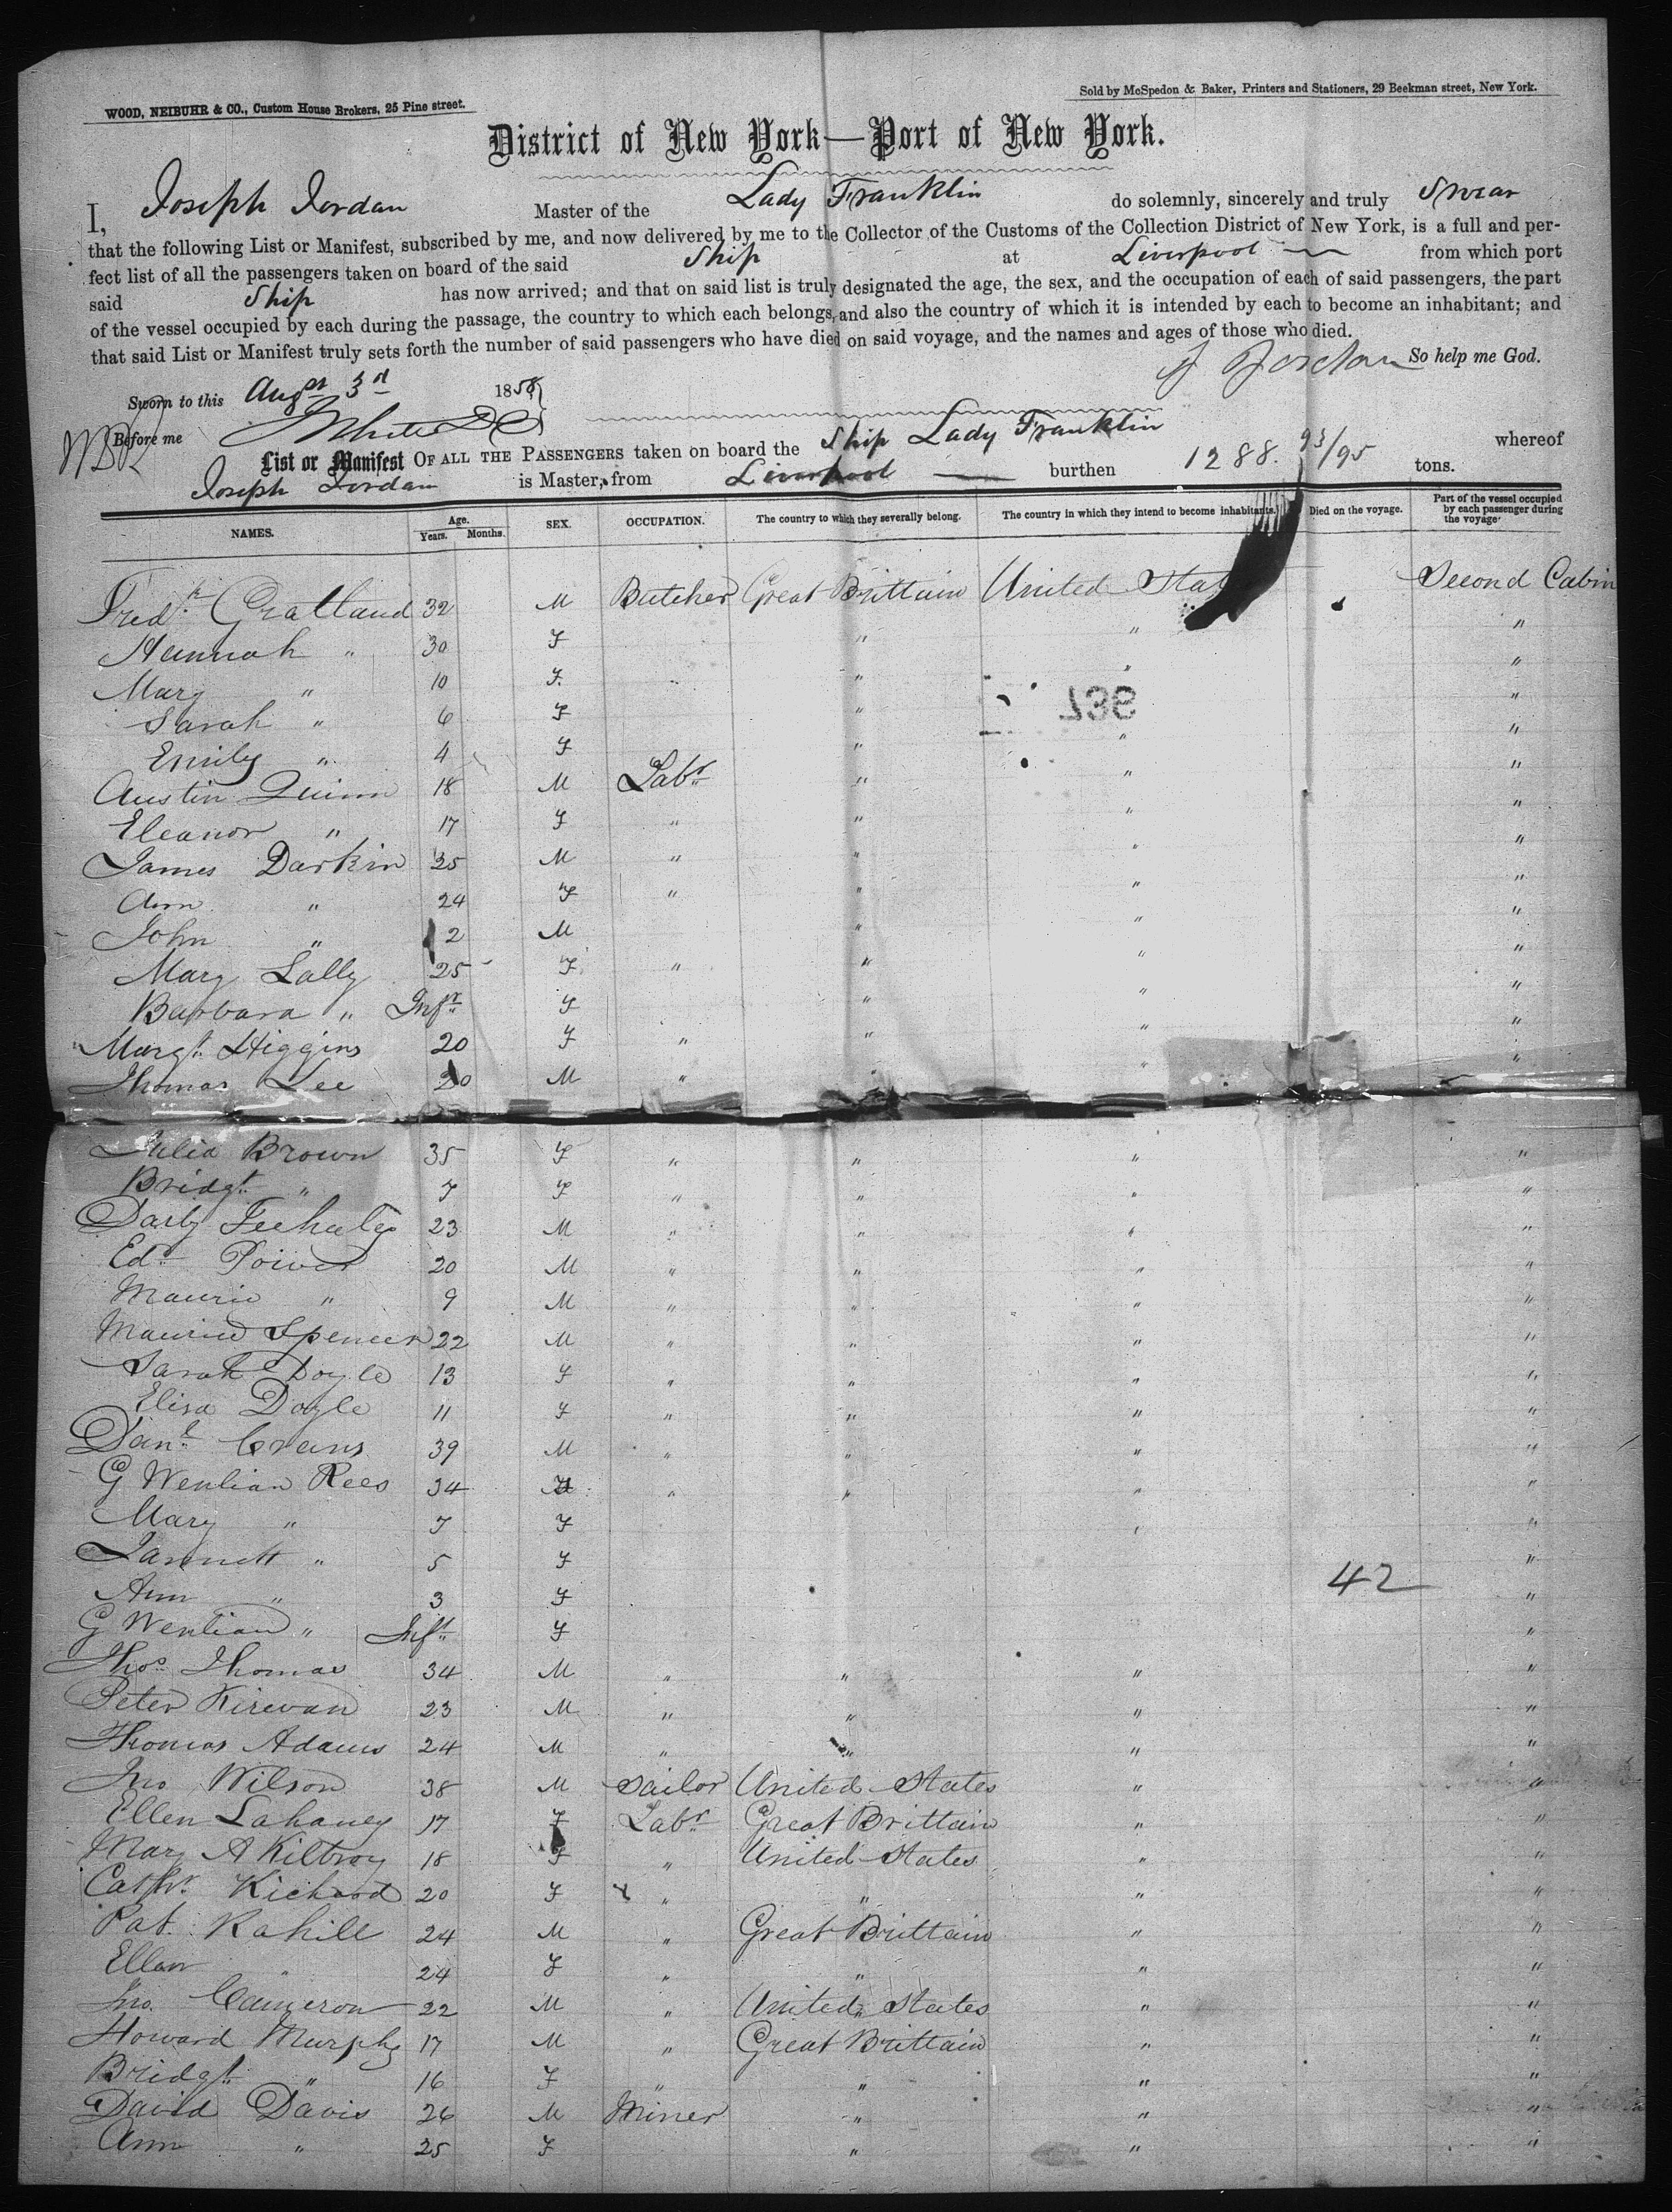 WOOD, NEIBUHR & CO., Custom House Brokers, 25 Pine street.
Sold by McSpedon & Baker, Printers and Stationers, 29 Beekman street, New York.
District of New York—Port of New York.
I, Joseph Jordan Master of the Lady Franklin do solemnly, sincerely and truly Swear
that the following List or Manifest, subscribed by me, and now delivered by me to the Collector of the Customs of the Collection District of New York, is a full and per-
fect list of all the passengers taken on board of the said Ship at Liverpool from which port
said Ship has now arrived; and that on said list is truly designated the age, the sex, and the occupation of each of said passengers, the part
of the vessel occupied by each during the passage, the country to which each belongs, and also the country of which it is intended by each to become an inhabitant; and
that said List or Manifest truly sets forth the number of said passengers who have died on said voyage, and the names and ages of those who died.
J Jordan So help me God.
Sworn to this Augst 3rd 185
Before me White
List or Manifest OF ALL THE PASSENGERS taken on board the Ship Lady Franklin whereof
Joseph Jordan is Master, from Liverpool burthen 1288. 93/95 tons.
NAMES. Age. Years. Months. SEX. OCCUPATION. The country to which they severally belong. The country in which they intend to become inhabitants. Died on the voyage. Part of the vessel occupied by each passenger during the voyage
Fredk Gratland 32 M Butcher Great Brittain United Sta Second Cabin
Hannah " 30 F " " "
Mary " 10 F. " " "
736
Sarah " 6 F " "
Emily " 4 F " " "
Austin Quinn 18 M Labr " " "
Eleanor " 17 F " " " "
James Darkin 35 M " " " "
Ann " 24 F " " " "
John " 2 M " " "
Mary Lally 25 F " " " "
Barbara " Inft F " " "
Margt Higgins 20 F " " " "
Thomas Lee 20 M " " " "
Julia Brown 35 F " " " "
Bridgt " 7 F " " " "
Darby Feehaley 23 M " " " "
Edd Power 20 M " " " "
Mauric " 9 M " " " "
Maurice Spencer 22 M " " " "
Sarah Doyle 13 F " " " "
Eliza Doyle 11 F " " " "
Danl Evans 39 M " " " "
G Wenlian Rees 34 " " " "
Mary " 7 F " "
Jannett " 5 F "
42
Ann " 3 F "
G Wenlian " Inft F "
Thos Thomas 34 M " " " "
Peter Kirevan 23 M " " " "
Thomas Adams 24 M " " " "
Jno Wilson 38 M Sailor United States " "
Ellen Lahaney 17 F Labr Great Brittain " "
Mary A Kilbroy 18 F " United States " "
Cathr Kichard 20 F " " " "
Pat. Rahill 24 M " Great Brittain " "
Ellen " 24 F " " " "
Jno. Cameron 22 M " United States " "
Howard Murphy 17 M " Great Brittain " "
Bridgt " 16 F " " " "
David Davis 26 M Miner " " "
Ann " 25 F " " "